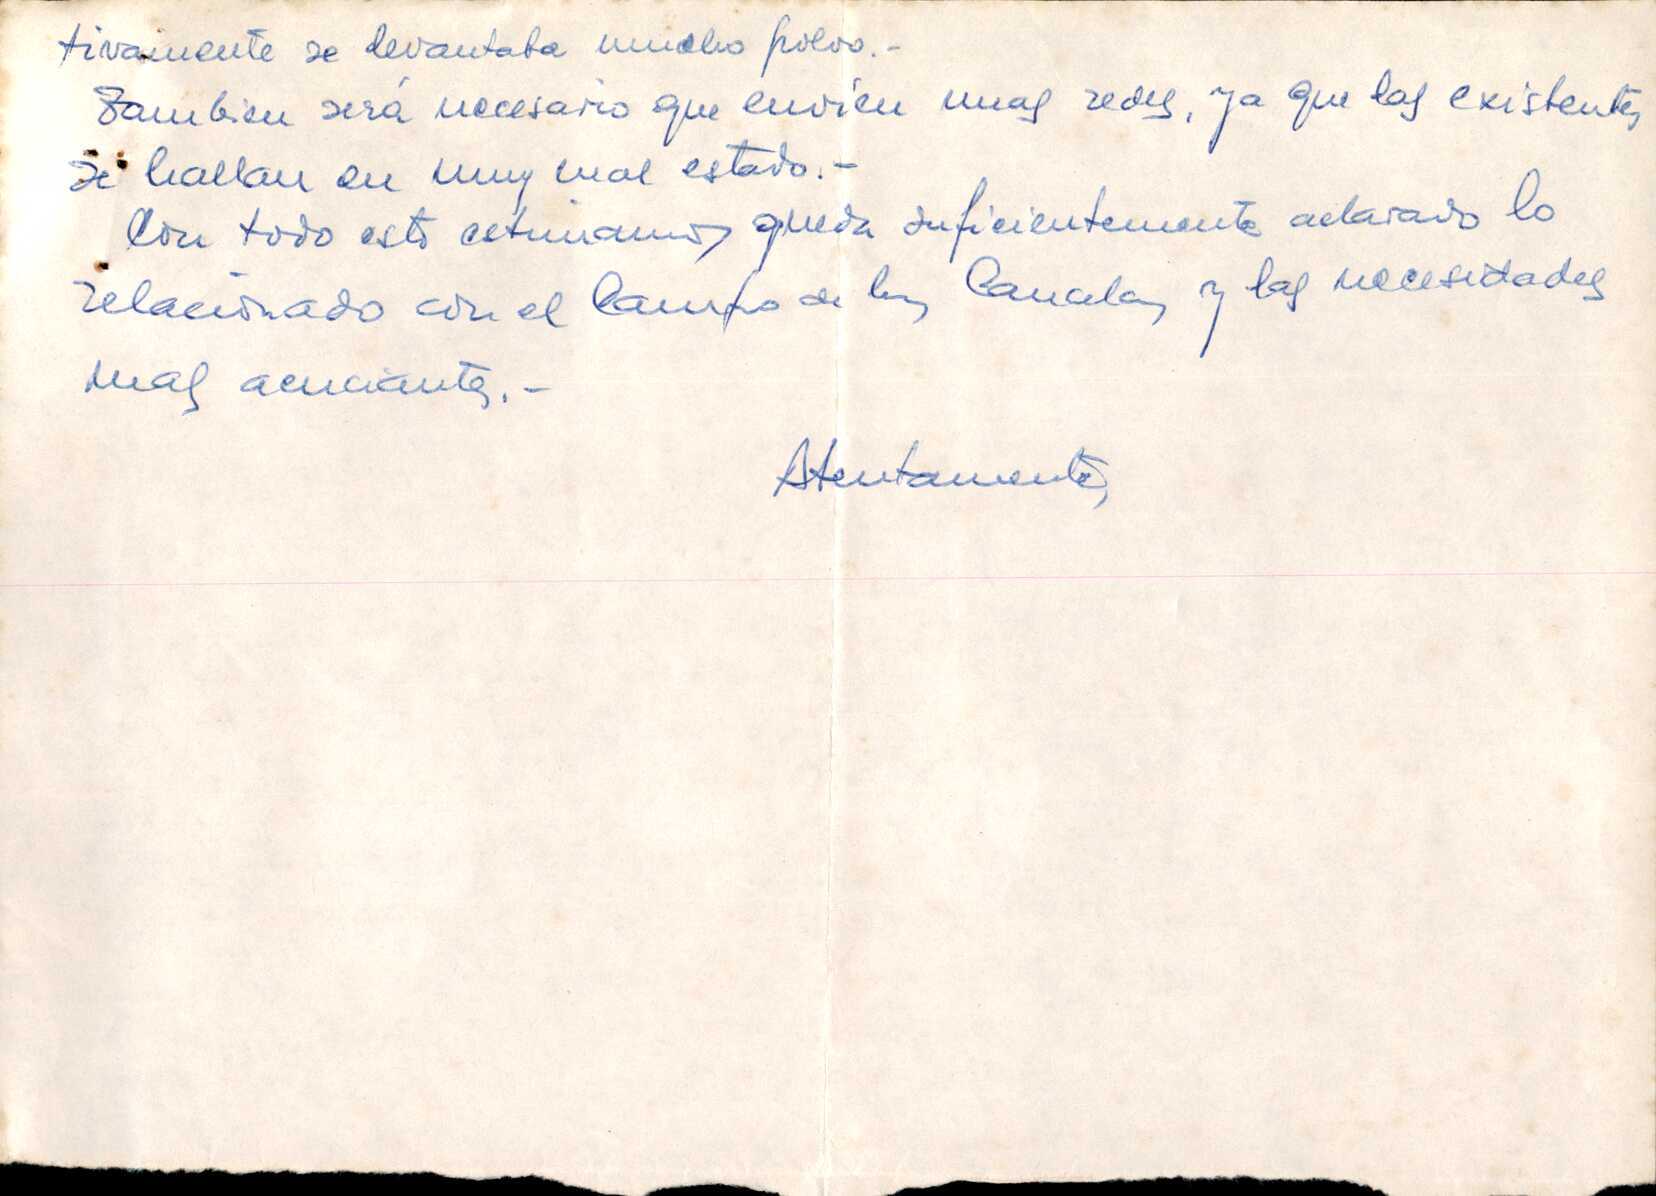 tivamente se levantaba mucho polvo.-
Tambien será necesario que envíen unas redes, ya que las existentes
se hallan en muy mal estado.-
Con todo esto estimamos queda suficientemente aclarado lo
relacionado con el Campo de las Canelas y las necesidades
mas acuciantes.-
Atentamente,